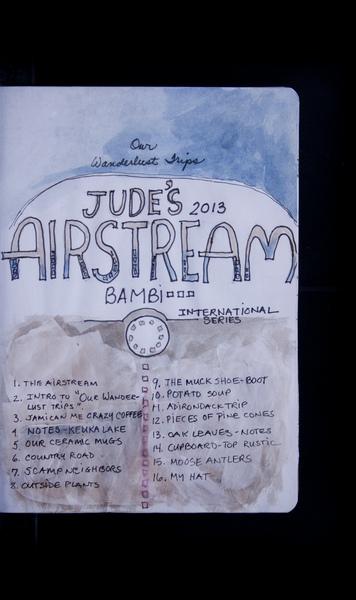 Our
Wanderlust Trips
JUDE'S 2013
AIRSTREAM
BAMBi
INTERNATIONAL
SERIES
1. THE AIRSTREAM
2. INTRO TO "OUR WANDER-
LUST TRIPS".
3. JAMICAN ME CRAZY COFFEE
4. NOTES - KEUKA LAKE
5. OUR CERAMIC MUGS
6. COUNTRY ROAD
7. SCAMP NEIGHBORS
8. OUTSIDE PLANTS
9. THE MUCK SHOE-BOOT
10. POTATO SOUP
11. ADIRONDACK TRIP
12. PIECES OF PINE CONES
13. OAK LEAVES - NOTES
14. CUPBOARD-TOP RUSTIC
15. MOOSE ANTLERS
16. MY HAT